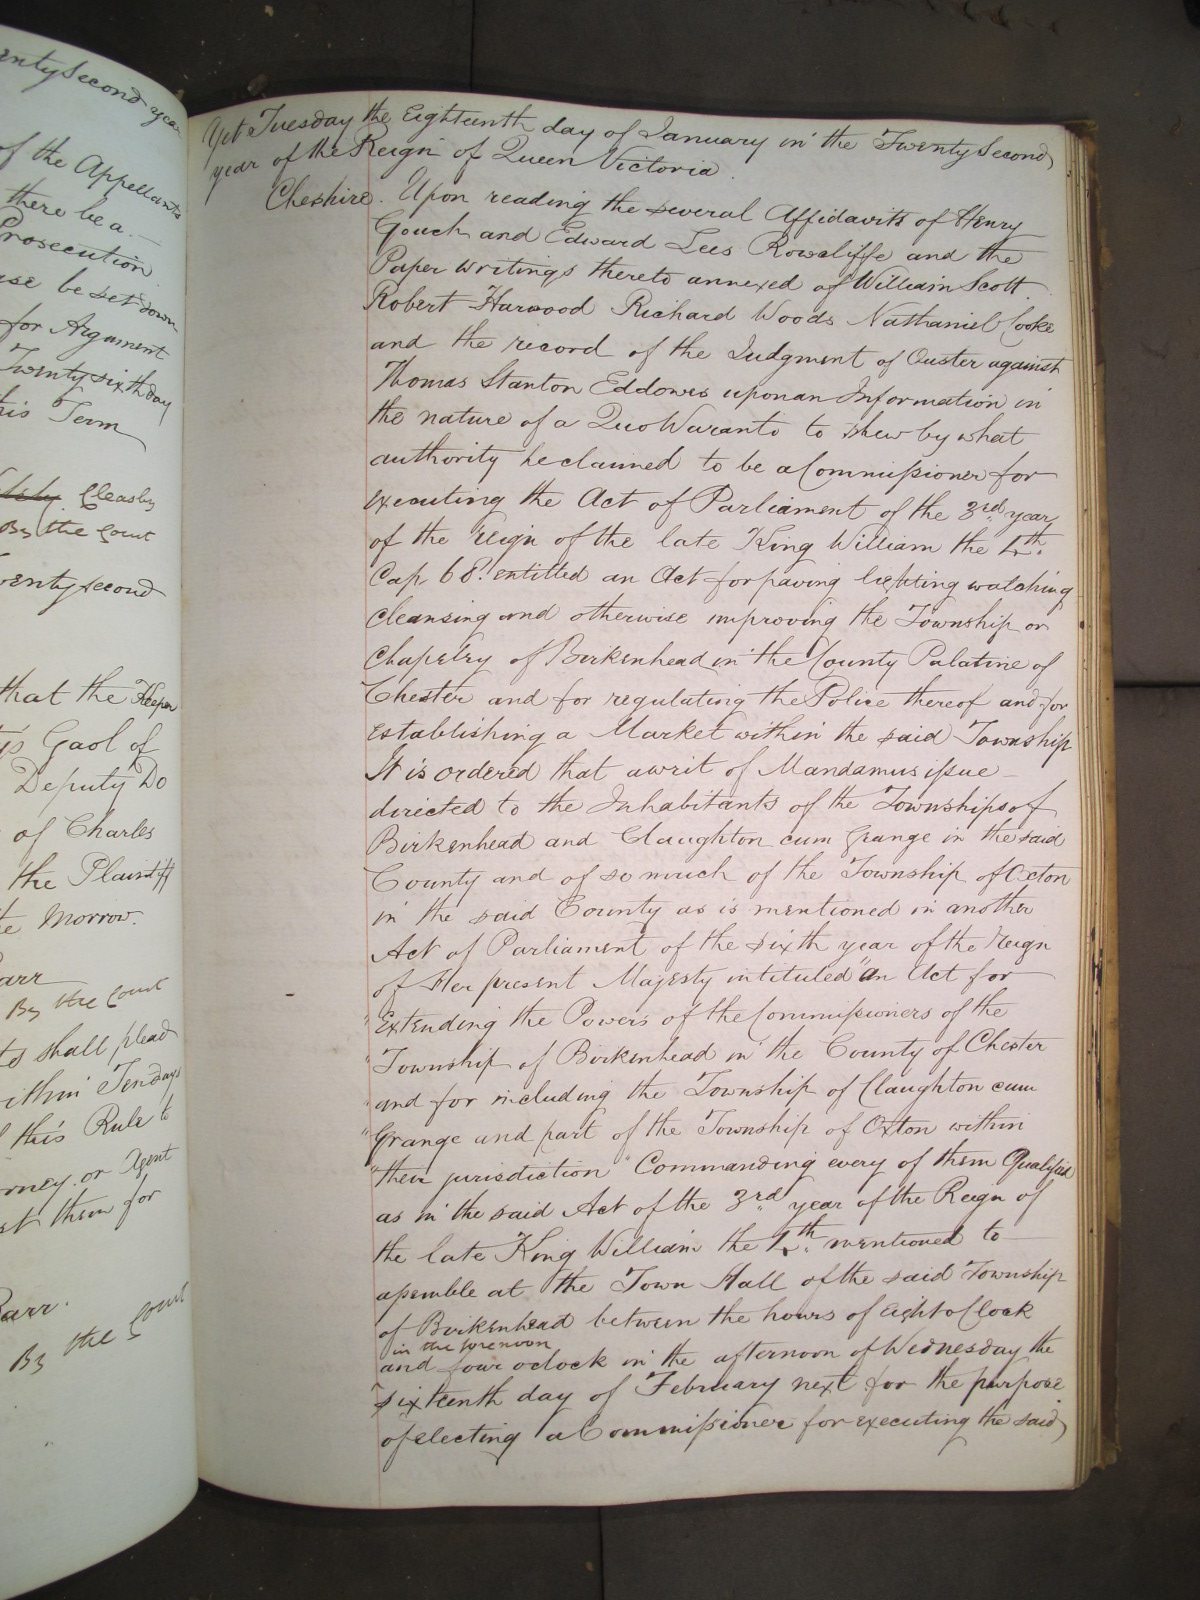 entySecond year
of the Appellants
there be a
Prosecution
use be set down
for Argument
Twenty sixth day
this Term
Cleasby
By the Court
wenty second
that the Keeper
Gaol of
Deputy Do
of Charles
the Plaintiff
Morrow.
arr
By the Court
shall plead
ithin Ten days
this Rule to
rney or Agent
st them for
Barr.
By the Court
Yet Tuesday the Eighteenth day of January in the Twenty Second
year of the Reign of Queen Victoria.
Cheshire. Upon reading the several Affidavits of Henry
Gouch and Edward Lees Rowcliffe and the
Paper writings thereto annexed of William Scott
Robert Harwood Richard Woods Nathaniel Cooke
and the record of the Judgment of Ouster against
Thomas Stanton Eddowes upon an Information in
the nature of a Quo Waranto to shew by what
authority he claimed to be a Commissioner for
executing the Act of Parliament of the 3rd year
of the reign of the late King William the 4th
Cap. 68. entitled an Act for paving lighting watching
cleansing and otherwise improving the Township or
Chapelry of Birkenhead in the County Palatine of
Chester and for regulating the Police thereof and for
establishing a Market within the said Township
It is ordered that a writ of Mandamus issue
directed to the Inhabitants of the Townships of
Birkenhead and Claughton cum Grange in the said
County and of so much of the Township of Oxton
in the said County as is mentioned in another
Act of Parliament of the sixth year of the Reign
of Her present Majesty intituled "an Act for
"Extending the Powers of the Commissioners of the
"Township of Birkenhead in the County of Chester
"and for including the Township of Claughton cum
"Grange and part of the Township of Oxton within
"their jurisdiction" Commanding every of them Qualified
as in the said Act of the 3rd year of the Reign of
the late King William the 4th mentioned to
assemble at the Town Hall of the said Township
of Birkenhead between the hours of Eight o Clock
in the forenoon
and four oclock in the afternoon of Wednesday the
sixteenth day of February next for the purpose
of electing a Commissioner for executing the said